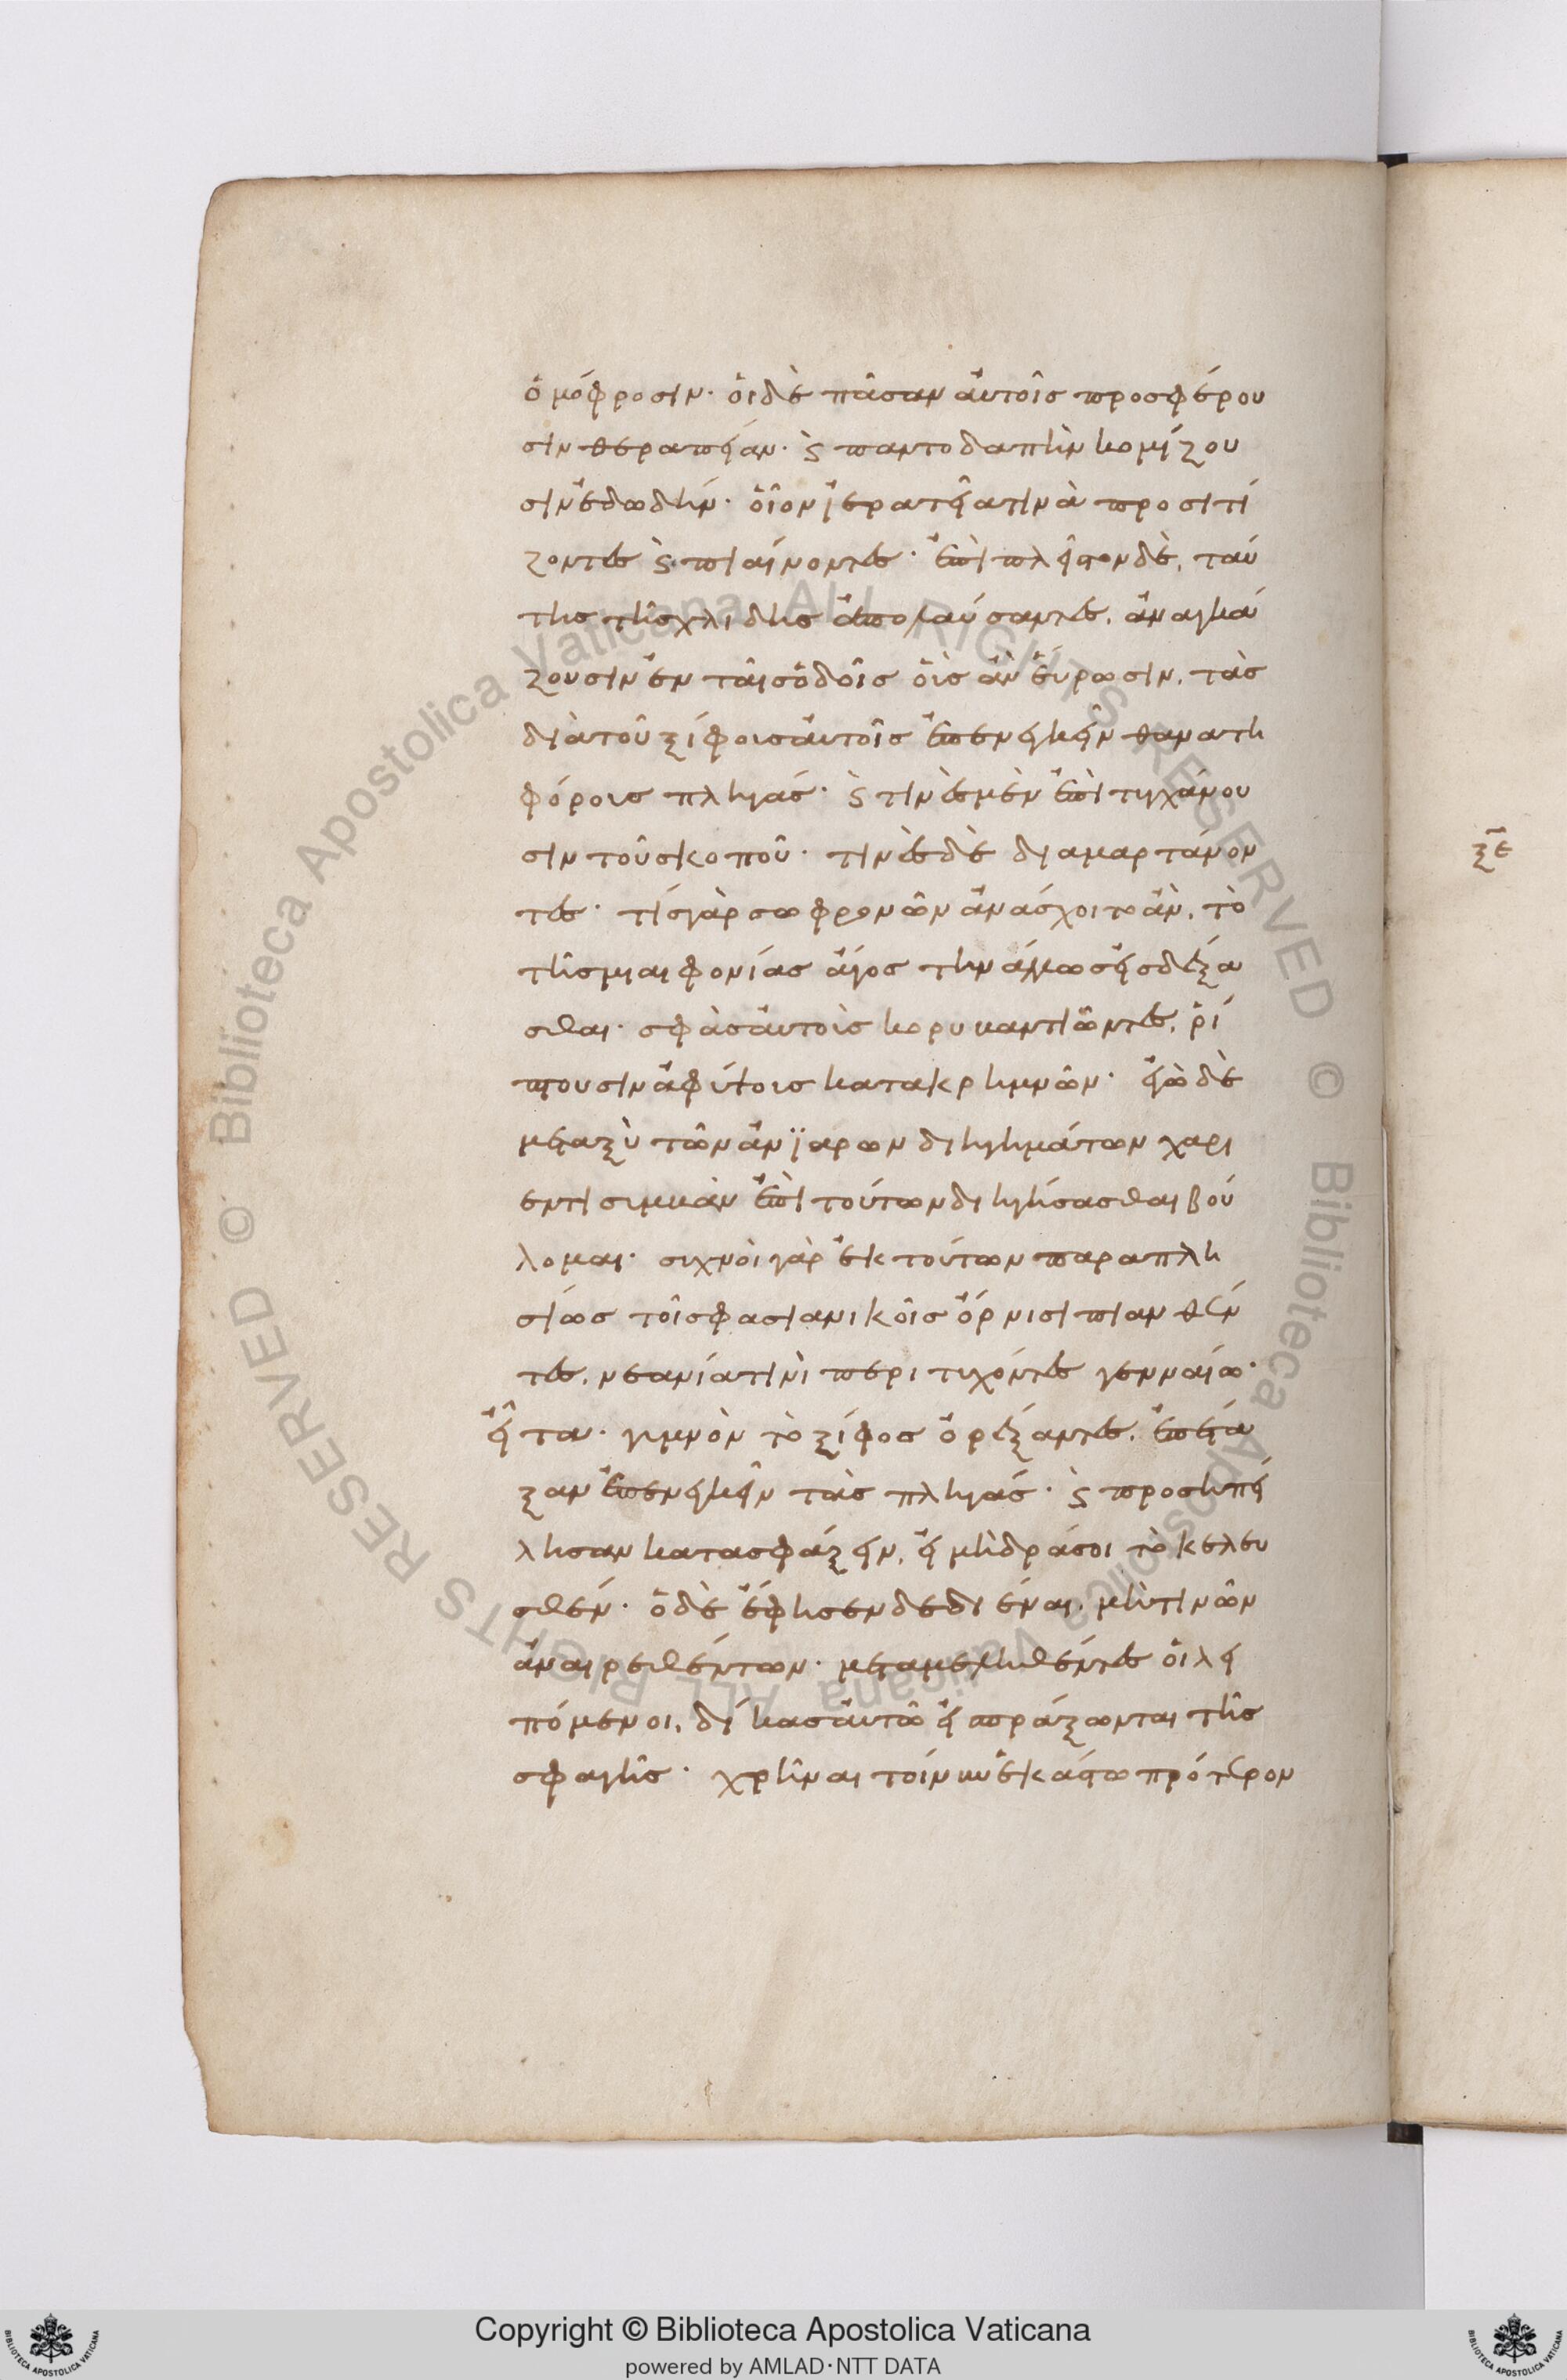 ὁμόφροσιν· οἱ δὲ πᾶσαν αὐτοῖς προσφέρου
σιν θεραπείαν· ϛ παντοδαπὴν κομίζου
σιν ἐδωδήν· οἷον ἱερατεῖα τινὰ προσιτί
ζοντες ϛ πιαίνοντες· ἐπιπλεῖστον δὲ, ταύ
της τῆς χλιδης ἀπολαύσαντες, ἀναγκά
ζουσιν ἐν ταῖς ὁδοῖς οἷς ἂν εὕρωσιν, τὰς
διὰ τοῦ ξίφους αὐτοῖς ἐπενεγκεῖν θανατη
φόρους πληγάς· ϛ τινὲς μὲν ἐπιτυγχάνου
σιν τοῦ σκοποῦ· τινὲς δὲ διαμαρτάνον
τες· τίς γὰρ σωφρονῶν ἀνάσχοιτο ἂν, τὸ
τῆς μιαιφονίας ἄγος τὴν ἄλλως εἰσδέξα
σθαι· σφᾶς αὐτοὺς κορυβαντιῶντες, ῥί
πτουσιν ἀφύτοις κατακρημνῶν· ἐγὼ δὲ
μεταξὺ τῶν ἀνϊαρων διηγημάτων χαρι
εντι συμβὰν ἐπὶ τούτων διηγήσασθαι βού
λομαι· συχνοὶ γὰρ ἐκ τούτων παραπλη
σίως τοῖς φασιανικοῖς ὄρνισι πιανθέν
τες, νεανία τινὶ περιτυχόντες γενναίω·
εἶτα· γυμνὸν τὸ ξίφος ὀρέξαντες, ἐπέτα
ξαν ἐπενεγκεῖν τὰς πληγάς· ϛ προσηπεί
λησαν κατασφάξειν, εἰ μὴ δράσοι τὸ κελευ
σθέν· ὁ δὲ ἔφησεν δεδιέναι, μὴ τινῶν
ἀναιρεθέντων· μεταμεληθέντες οἱ λει
πόμενοι, δίκας αὐτῶ εἰσπράξωνται τῆς
σφαγῆς· χρῆναι τοίνυν ἑκάστω πρότερον
ξε
Copyright © Biblioteca Apostolica Vaticana
powered by AMLAD·NTT DATA